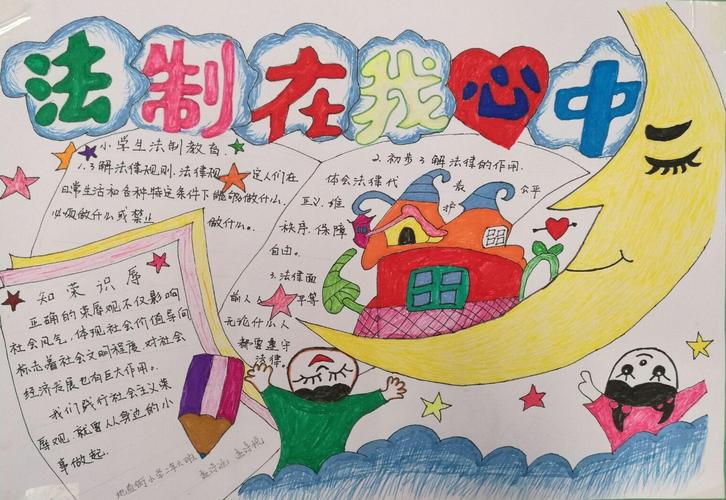 法制在我心中
小学生法制教育.
1.了解法律规则.法律规定人们在
日常生活和各种特定条件下能够做什么,
必须做什么或禁止做什么。
2.初步了解法律的作用.
体会法律代表公平
正义.维护
秩序.保障
自由。
3.法律面
前人人平等
无论什么人
都要遵守
法律。
知荣识辱
正确的荣辱观不仅影响
社会风气,体现社会价值导向
标志着社会文明程度.对社会
经济发展也有巨大作用。
我们践行社会主义荣
辱观.就要从身边的小
事做起.
小学二年六班